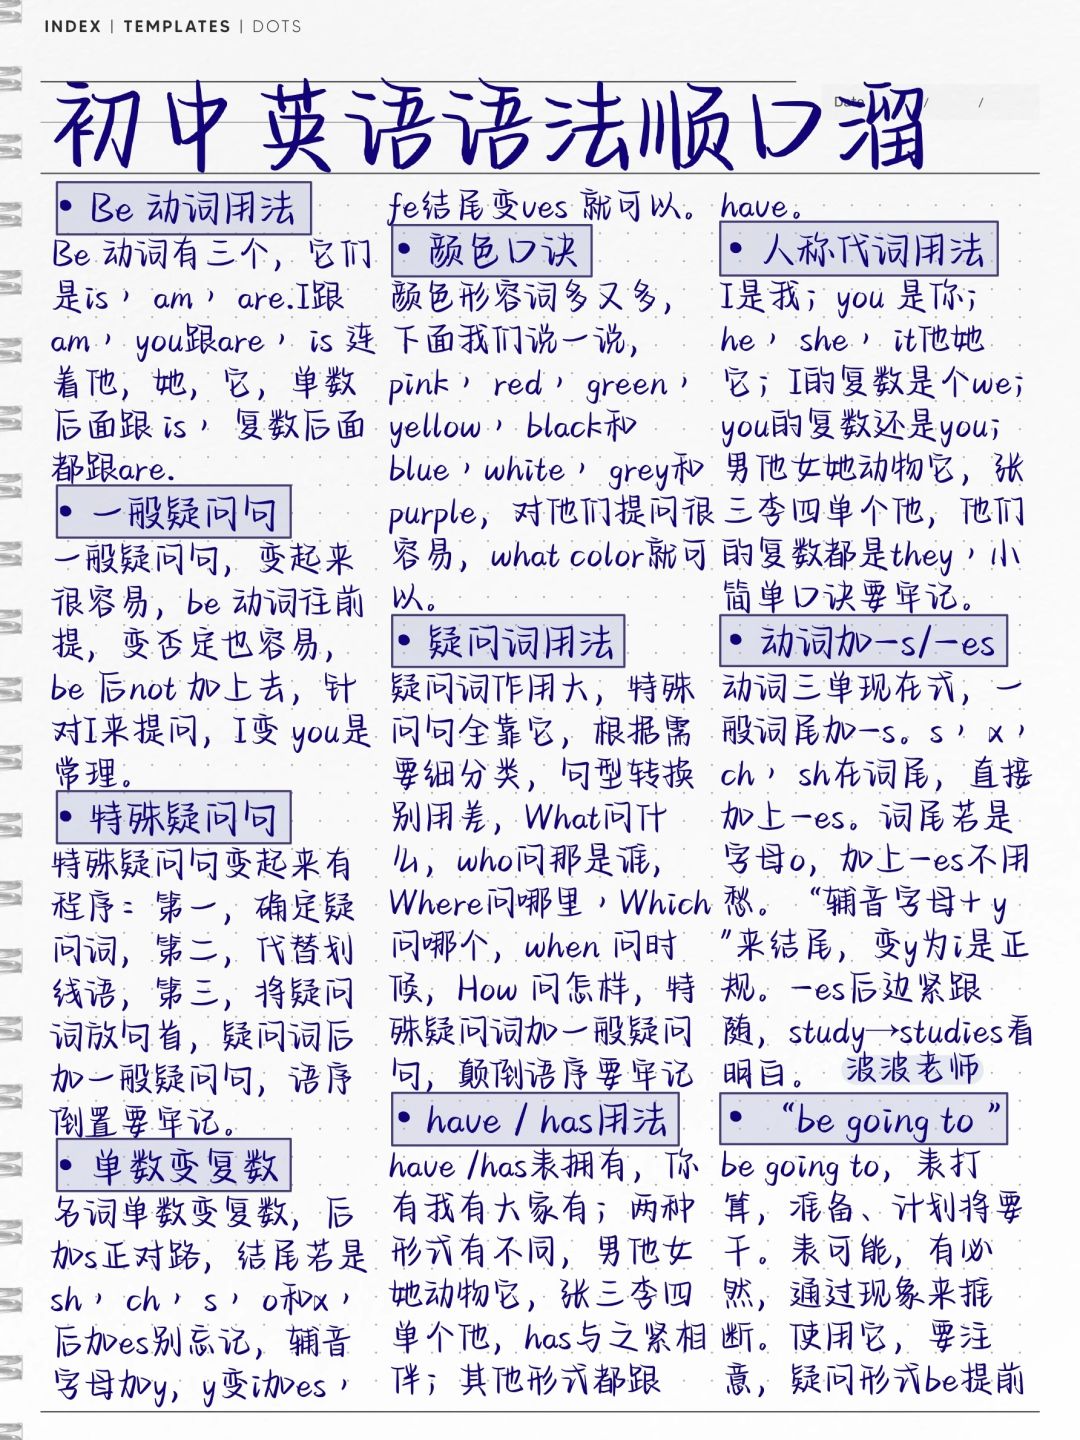 INDEX | TEMPLATES | DOTS
Date / /
初中英语语法顺口溜
• Be 动词用法
Be 动词有三个，它们
是is， am， are.I跟
am， you跟are， is 连
着他，她，它，单数
后面跟 is， 复数后面
都跟are.
• 一般疑问句
一般疑问句，变起来
很容易，be 动词往前
提，变否定也容易，
be 后not 加上去，针
对I来提问，I变 you是
常理。
• 特殊疑问句
特殊疑问句变起来有
程序：第一，确定疑
问词，第二，代替划
线语，第三，将疑问
词放句首，疑问词后
加一般疑问句，语序
倒置要牢记。
• 单数变复数
名词单数变复数，后
加s正对路，结尾若是
sh， ch， s， o和x，
后加es别忘记，辅音
字母加y，y变i加es，
fe结尾变ves 就可以。
• 颜色口诀
颜色形容词多又多，
下面我们说一说，
pink， red， green，
yellow， black和
blue，white， grey和
purple，对他们提问很
容易，what color就可
以。
• 疑问词用法
疑问词作用大，特殊
问句全靠它，根据需
要细分类，句型转换
别用差，What问什
么，who问那是谁，
Where问哪里，Which
问哪个，when 问时
候，How 问怎样，特
殊疑问词加一般疑问
句，颠倒语序要牢记
• have / has用法
have /has表拥有，你
有我有大家有；两种
形式有不同，男他女
她动物它，张三李四
单个他，has与之紧相
伴；其他形式都跟
have。
• 人称代词用法
I是我；you 是你；
he， she， it他她
它；I的复数是个we；
you的复数还是you；
男他女她动物它，张
三李四单个他，他们
的复数都是they，小
简单口诀要牢记。
• 动词加—s/—es
动词三单现在式，一
般词尾加—s。s， x，
ch， sh在词尾，直接
加上—es。词尾若是
字母o，加上—es不用
愁。“辅音字母＋y
”来结尾，变y为i是正
规。—es后边紧跟
随，study→studies看
明白。 波波老师
• “be going to ”
be going to，表打
算，准备、计划将要
干。表可能，有必
然，通过现象来推
断。使用它，要注
意，疑问形式be提前